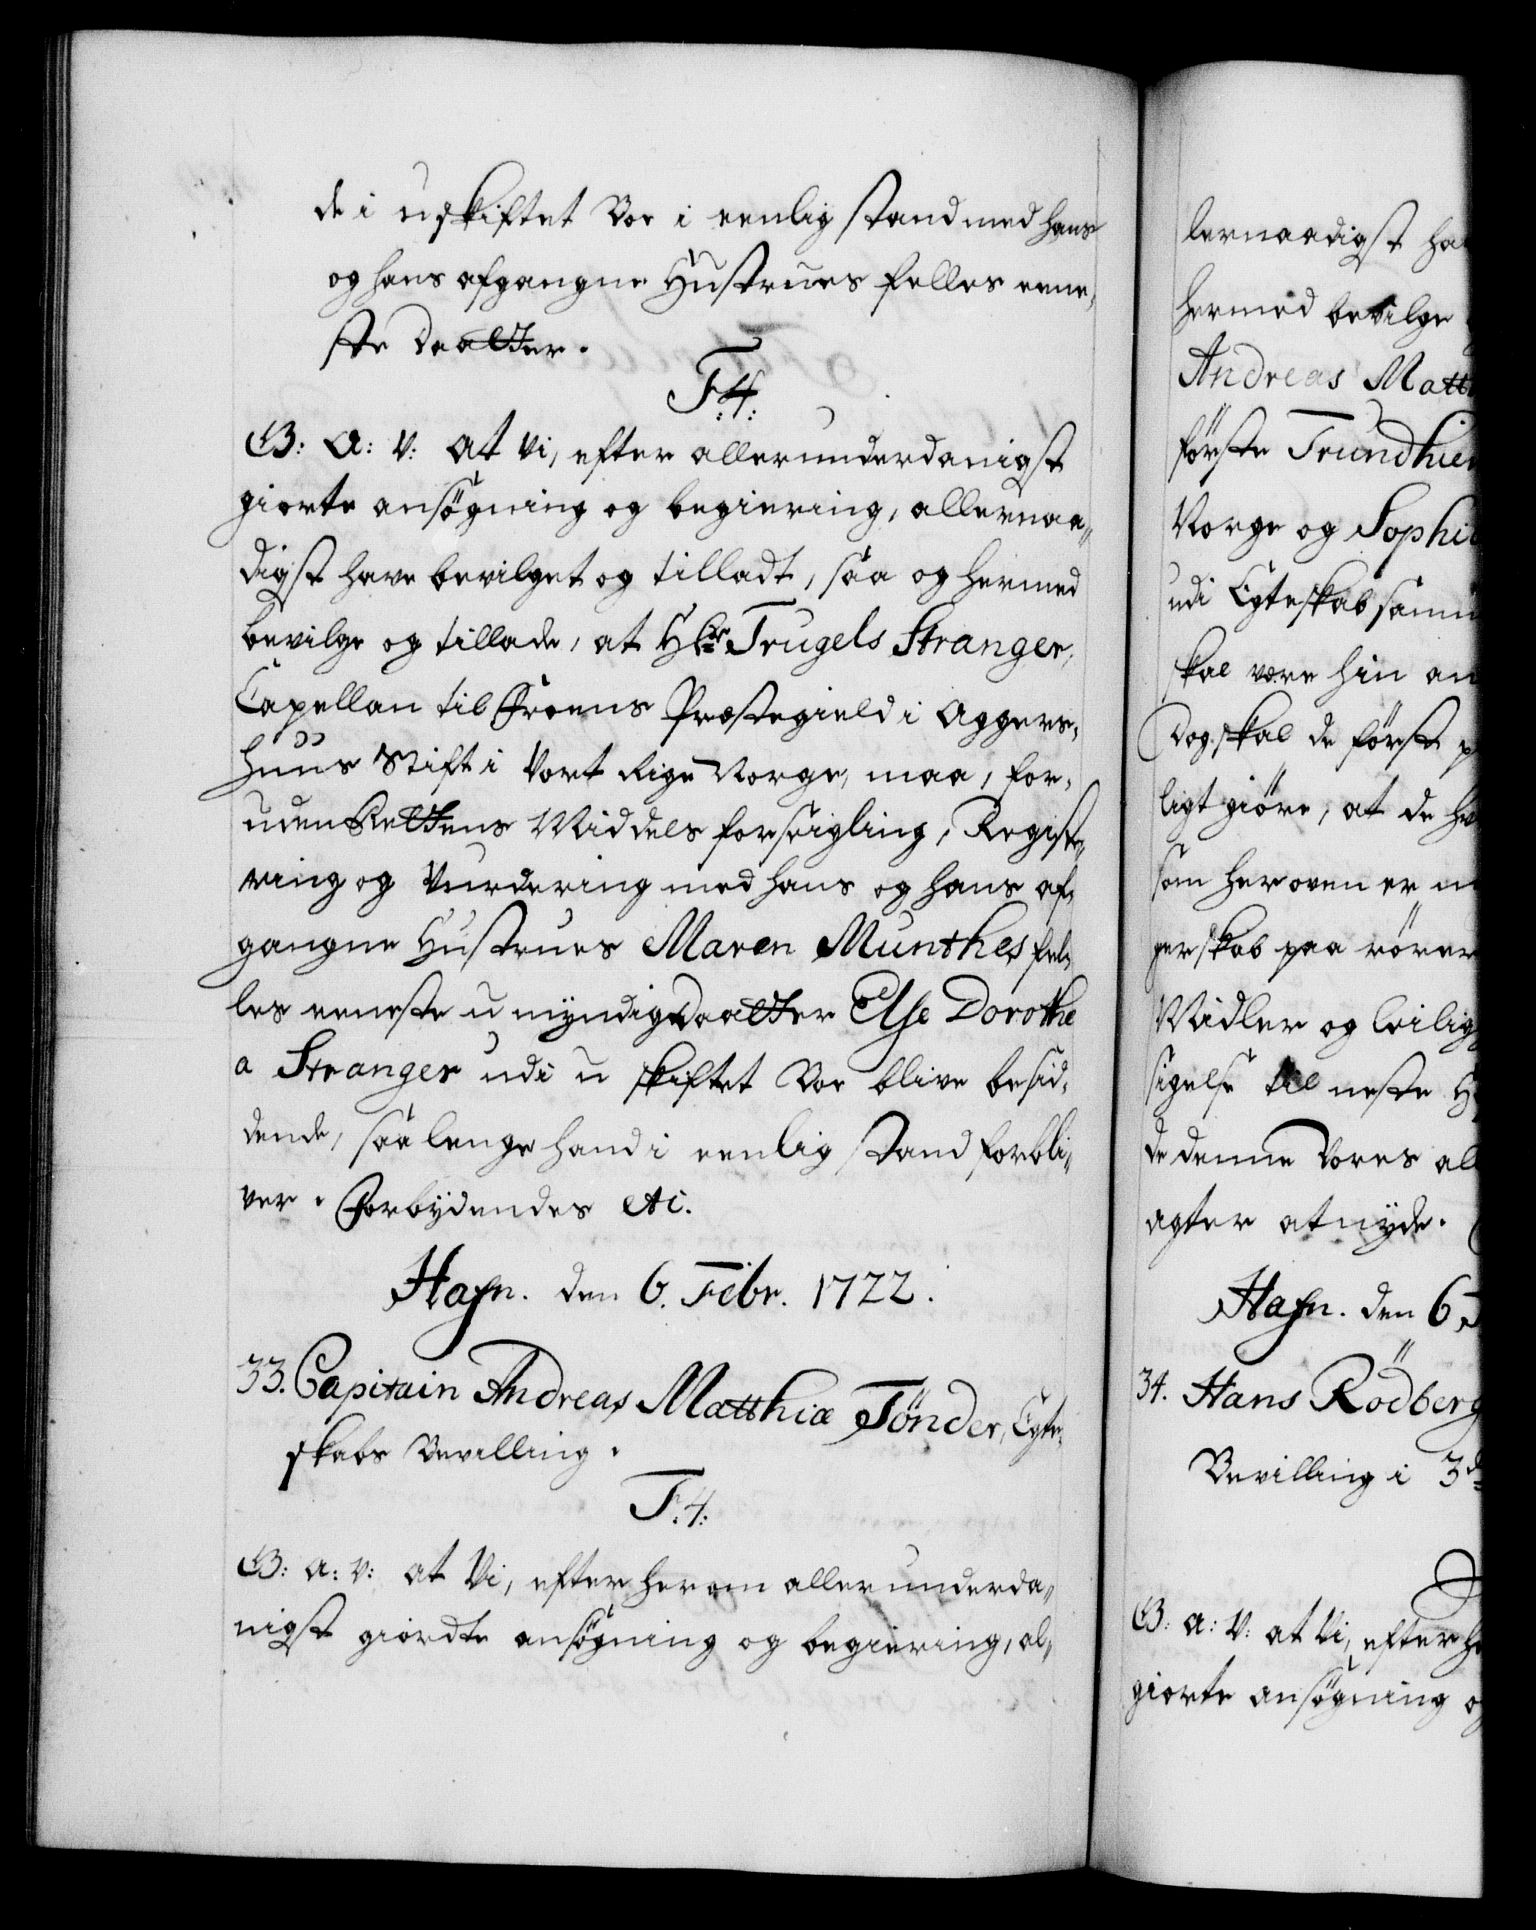 de i uskiftet Boe i eenlig stand med hans
og hans afgangne Hustrues felles eene,,
ste Daatter.
F. 4.
G: A: V: At Vi, efter allerunderdanigst
giorte ansøgning og begiering, allernaa,,
digst have bevilget og tilladt, saa og hermed
bevilge og tillade, at Hr: Trugels Stranger,
Capellan til Froens Præstegield i Aggers,,
huus Stift i Vort Rige Norge, maa, for,,
uden Rettens Middels forseigling, Registe,,
ring og Vurdering med hans og hans af,,
gangne Hustrues Maren Munthes fel,,
les eeneste umyndige Daatter Else Dorothe
a Stranger udi uskiftet Boe blive besid,,
dende, saa lenge hand i eenlig stand forbli,,
ver. Forbydendes etc.
Hafn. den 6. Febr. 1722.
33. Capitain Andreas Matthiæ Tønder, Egte,,
skabs Bevilling.
F. 4.
G: a: v: at Vi, efter herom allerunderda,,
nigst giordte ansøgning og begiering, al,,
lernaadigst ha
hermed bevilge
Andreas Matt
første Trundhie
Norge og Sophi
udi Egteskab
skal være hin an
Dog skal de først
ligt giøre, at de
som her oven er
gerskab paa rører
Midler og leilig
sigelse til neste
de denne Vores al
agter at nyde.
Hafn. den 6
34. Hans Rödberg
Bevilling i 3d
G: a: V: at Vi, efter he
giorte ansøgning o